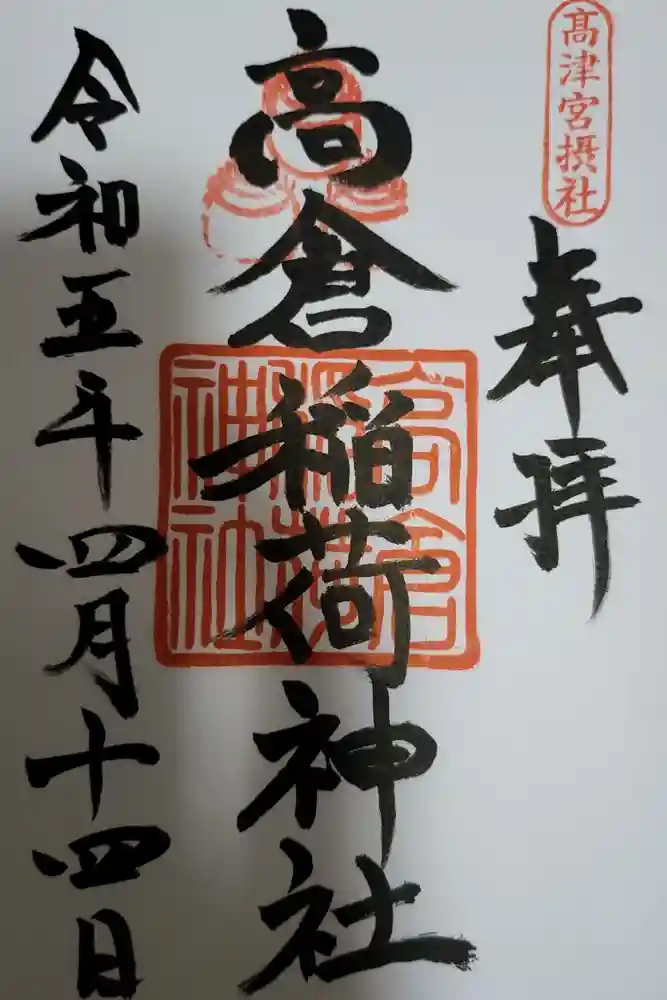 高津宮摂社
奉拝
高倉稲荷神社
高倉
稲荷
神社
令和五年四月十四日